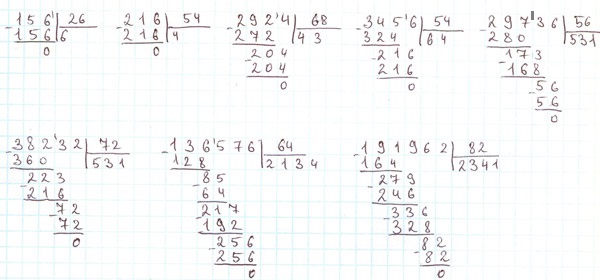 -156' 26
156 6
0
-216 54
216 4
0
-292'4 68
272 43
-204
204
0
-345'6 54
324 64
-216
216
0
-297'36 56
280 531
-173
168
-56
56
0
-382'32 72
360 531
-223
216
-72
72
0
-136'576 64
128 2134
-85
64
-217
192
-256
256
0
-191962 82
164 2341
-279
246
-336
328
-82
82
0